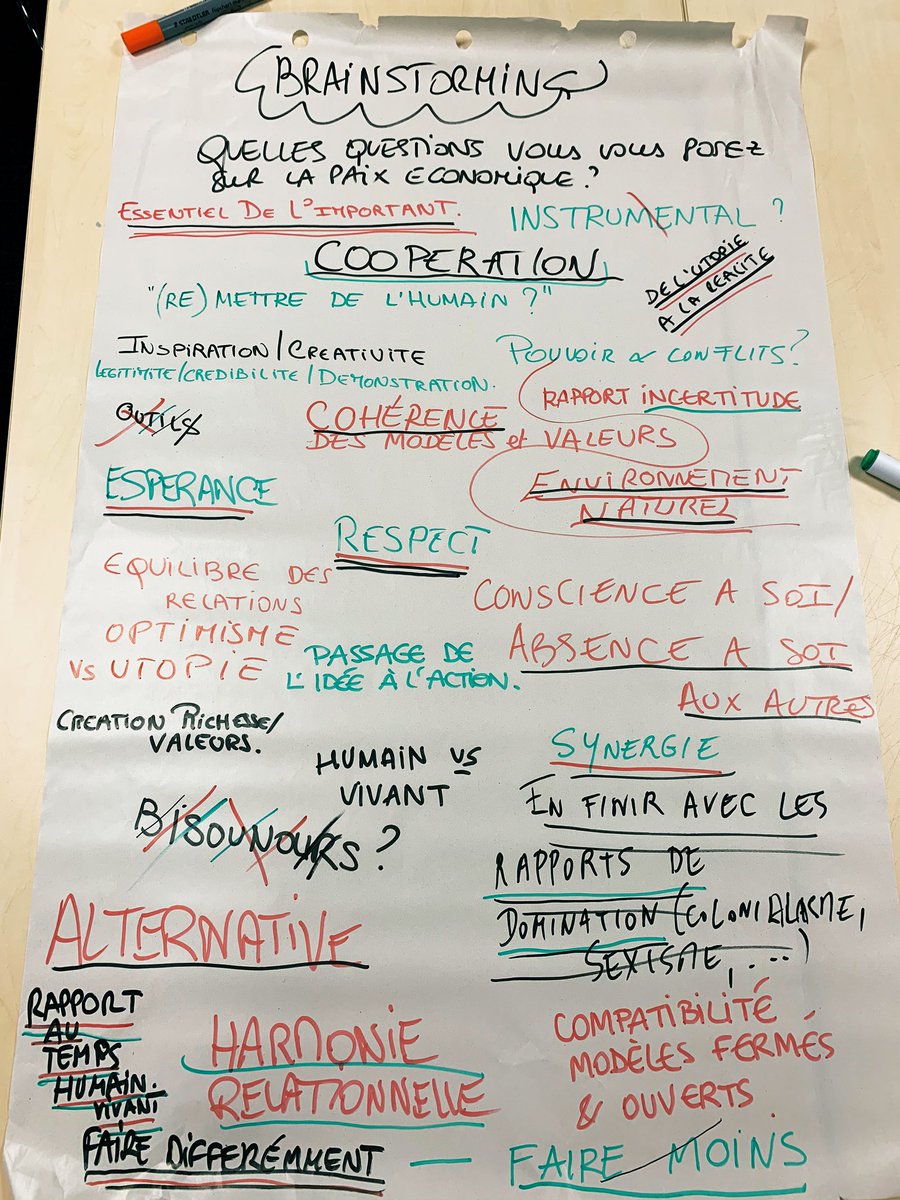 STAEDTLER
BRAINSTORMING
QUELLES QUESTIONS VOUS VOUS POSEZ
SUR LA PAIX ECONOMIQUE ?
ESSENTIEL DE L'IMPORTANT.
INSTRUMENTAL ?
COOPERATION
DE L'UTOPIE
A LA REALITE
"(RE) METTRE DE L'HUMAIN ?"
INSPIRATION/CREATIVITE
LEGITIMITE/CREDIBILITE/DEMONSTRATION.
POUVOIR & CONFLITS ?
RAPPORT INCERTITUDE
OUTILS
COHÉRENCE
DES MODELES et VALEURS
ENVIRONNEMENT
NATUREL
ESPERANCE
RESPECT
EQUILIBRE DES
RELATIONS
OPTIMISME
VS UTOPIE
CONSCIENCE A SOI/
ABSENCE A SOI
AUX AUTRES
PASSAGE DE
L'IDÉE À L'ACTION.
CREATION RICHESSE/
VALEURS.
HUMAIN VS
VIVANT
SYNERGIE
EN FINIR AVEC LES
RAPPORTS DE
DOMINATION (COLONIALISME,
SEXISME, ...)
BISOUNOURS ?
ALTERNATIVE
RAPPORT
AU
TEMPS
HUMAIN.
VIVANT
HARMONIE
RELATIONNELLE
COMPATIBILITÉ
MODÈLES FERMÉS
& OUVERTS.
FAIRE DIFFERÉMMENT — FAIRE MOINS